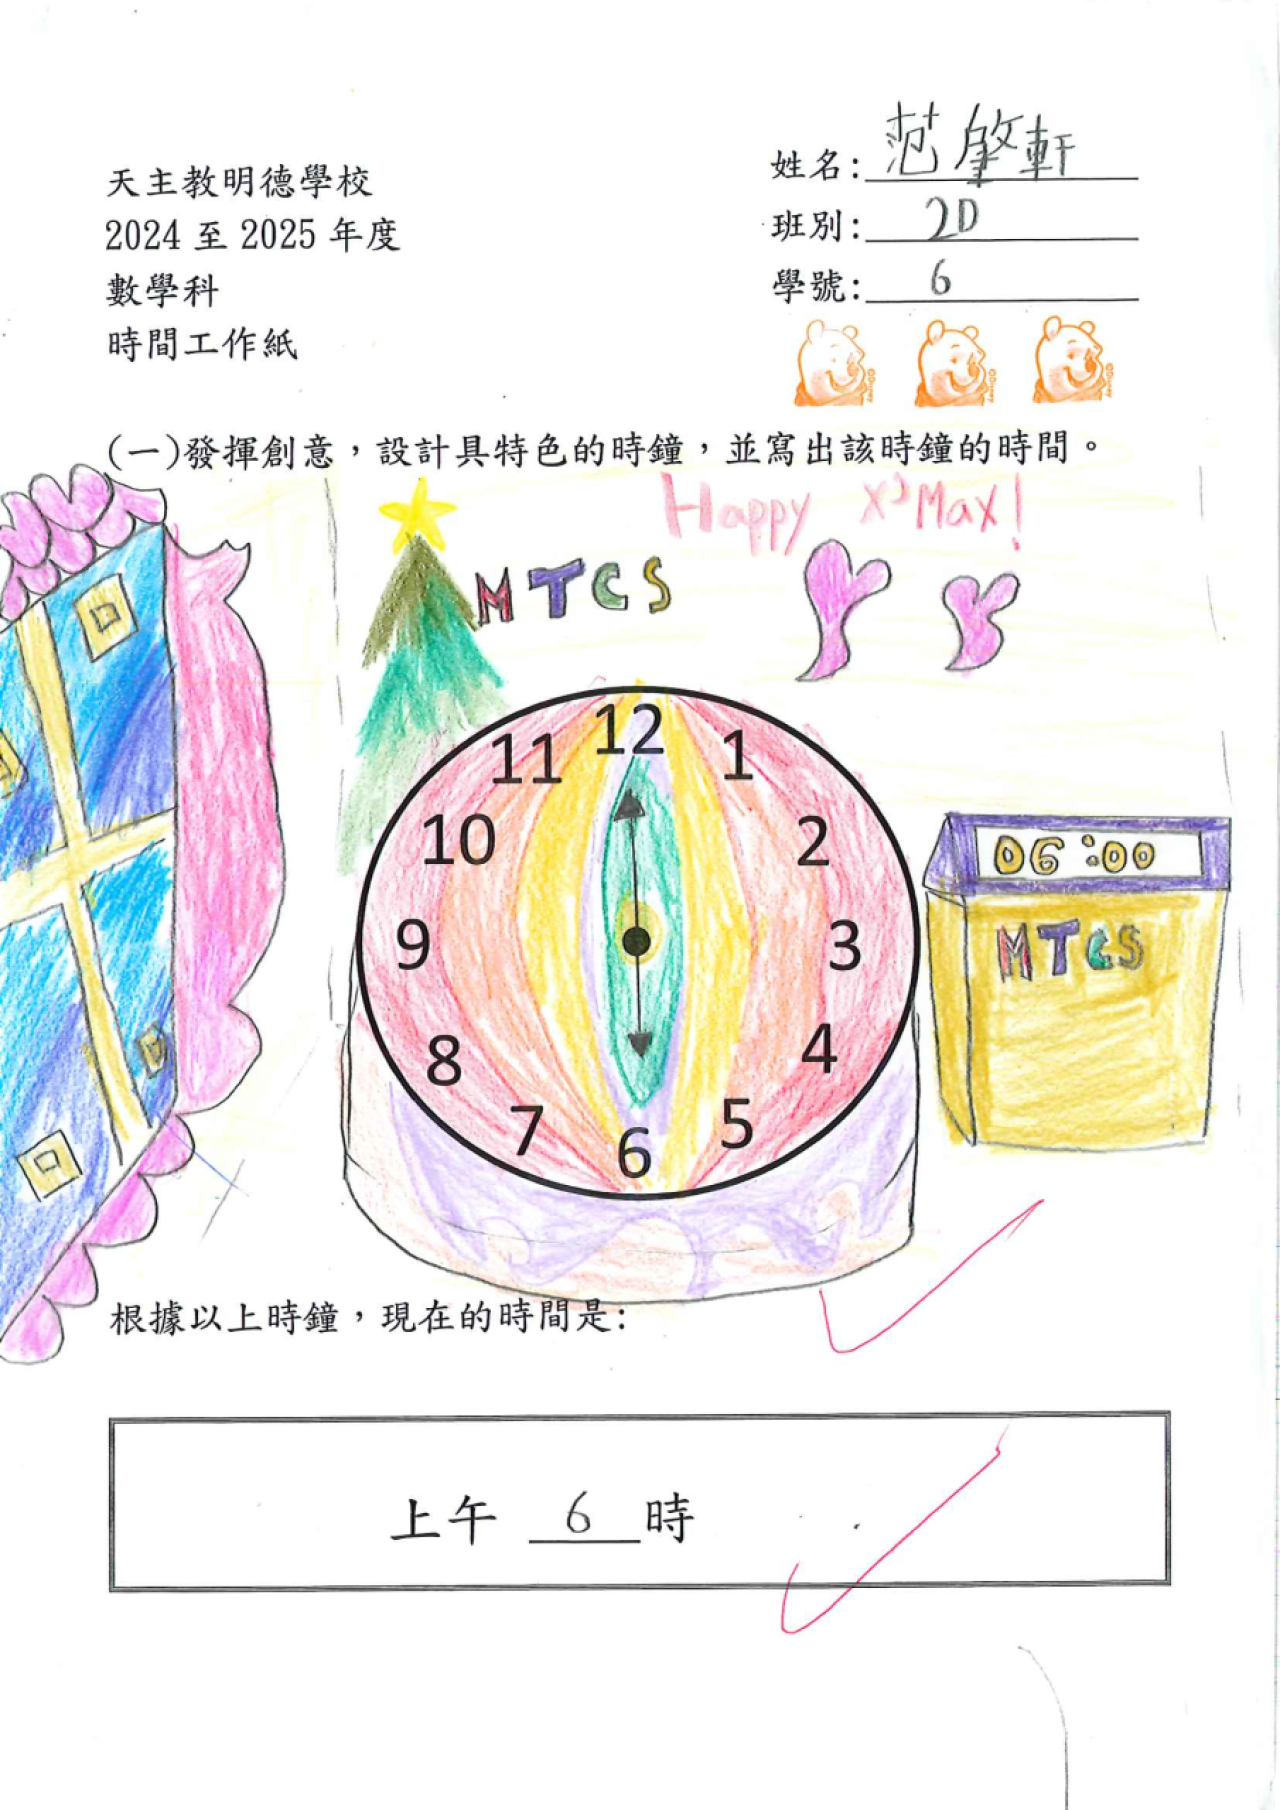 天主教明德學校
2024 至 2025 年度
數學科
時間工作紙
姓名: 范肇軒
班別: 2D
學號: 6
(一)發揮創意，設計具特色的時鐘，並寫出該時鐘的時間。
Happy X'Max!
MTCS
12
11 1
10 2
9 3
8 4
7 5
6
06:00
MTCS
根據以上時鐘，現在的時間是:
上午 6 時